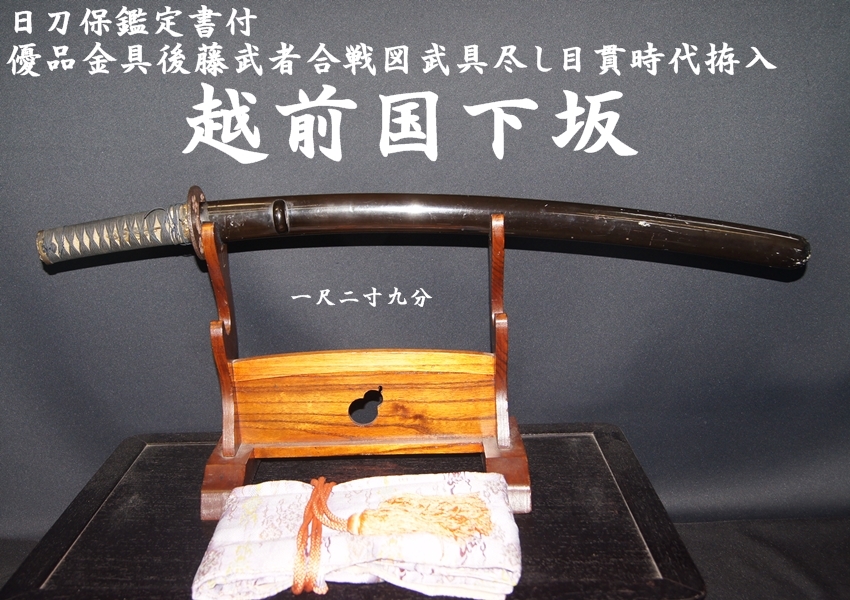 日刀保鑑定書付
優品金具後藤武者合戦図武具尽し目貫時代拵入
越前国下坂
一尺二寸九分